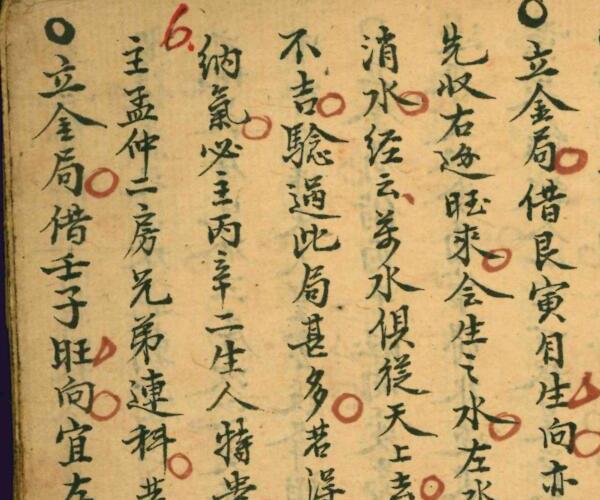 立金局借艮寅自生向亦
先收右边旺来会生之水左水
消水经云萬水俱從天上去
不吉驗過此局甚多若得
納氣必主丙辛二生人特贵
主孟仲二房兄弟連科
6.
立金局借壬子旺向宜左